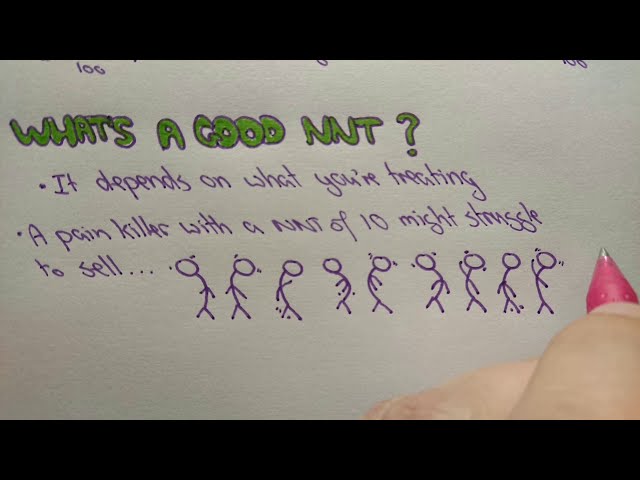 100 100
WHAT'S A GOOD NNT?
• It depends on what you're treating
• A pain killer with a NNT of 10 might struggle
to sell...